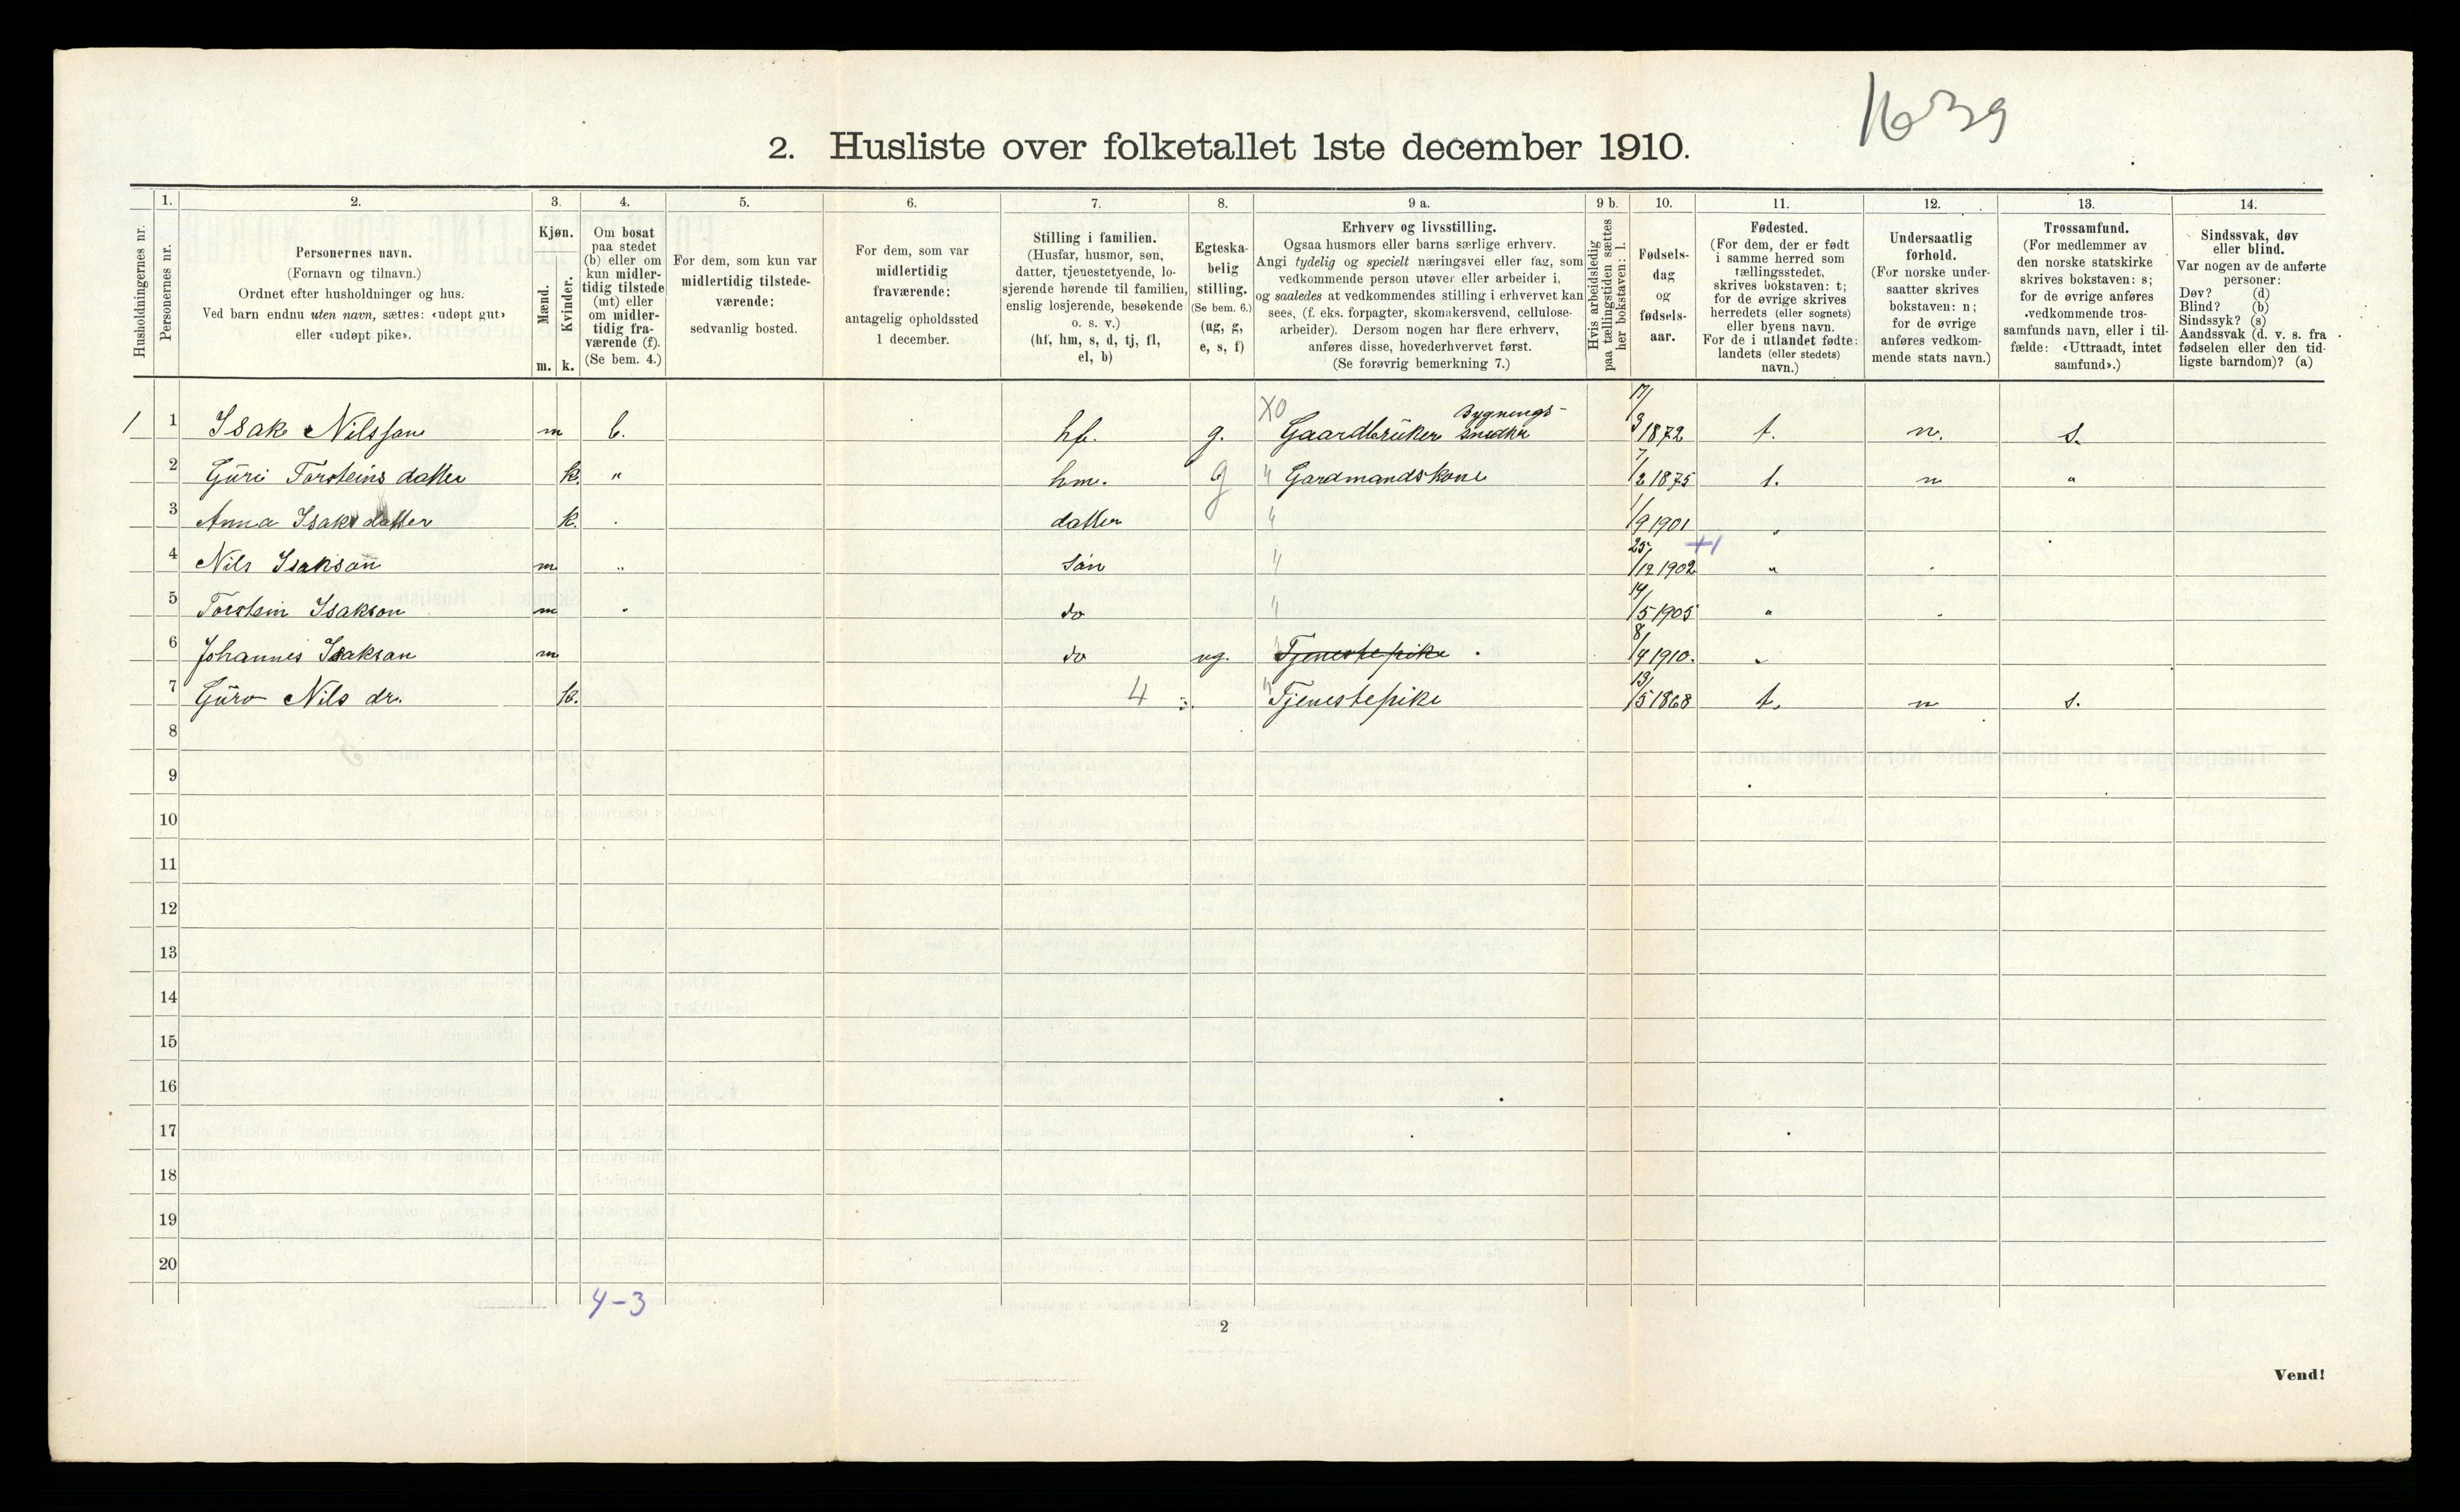 1639
2. Husliste over folketallet 1ste december 1910.
Husholdningernes nr.
1. Personernes nr.
2. Personernes navn. (Fornavn og tilnavn.) Ordnet efter husholdninger og hus. Ved barn endnu uten navn, sættes: «udøpt gut» eller «udøpt pike».
3. Kjøn. Mænd. m. Kvinder. k.
4. Om bosat paa stedet (b) eller om kun midlertidig tilstede (mt) eller om midlertidig fraværende (f). (Se bem. 4.)
5. For dem, som kun var midlertidig tilstedeværende: sedvanlig bosted.
6. For dem, som var midlertidig fraværende: antagelig opholdssted 1 december.
7. Stilling i familien. (Husfar, husmor, søn, datter, tjenestetyende, losjerende hørende til familien, enslig losjerende, besøkende o. s. v.) (hf, hm, s, d, tj, fl, el, b)
8. Egteskabelig stilling. (Se bem. 6.) (ug, g, e, s, f)
9 a. Erhverv og livsstilling. Ogsaa husmors eller barns særlige erhverv. Angi tydelig og specielt næringsvei eller fag, som vedkommende person utøver eller arbeider i, og saaledes at vedkommendes stilling i erhvervet kan sees, (f. eks. forpagter, skomakersvend, cellulosearbeider). Dersom nogen har flere erhverv, anføres disse, hovederhvervet først. (Se forøvrig bemerkning 7.)
9 b. Hvis arbeidsledig paa tællingstiden sættes her bokstaven: l.
10. Fødselsdag og fødselsaar.
11. Fødested. (For dem, der er født i samme herred som tællingsstedet, skrives bokstaven: t; for de øvrige skrives herredets (eller sognets) eller byens navn. For de i utlandet fødte: landets (eller stedets) navn.)
12. Undersaatlig forhold. (For norske undersaatter skrives bokstaven: n; for de øvrige anføres vedkommende stats navn.)
13. Trossamfund. (For medlemmer av den norske statskirke skrives bokstaven: s; for de øvrige anføres vedkommende trossamfunds navn, eller i tilfælde: «Uttraadt, intet samfund».)
14. Sindssvak, døv eller blind. Var nogen av de anførte personer: Døv? (d) Blind? (b) Sindssyk? (s) Aandssvak (d. v. s. fra fødselen eller den tidligste barndom)? (a)
1 1 Isak Nilssøn m b. hf. g. X0 Gaardbrüker Bygnings-snedker 17/3 1872 t. n. s.
2 Güri Torsteins datter k. " hm. g " Gardmandskone 7/2 1875 t. n "
3 Anna Isaksdatter k. . datter " 1/9 1901 "
4 Nils Isakson m " søn " 25/12 1902 +1 " "
5 Torstein Isakson m " do " 14/5 1905 " "
6 Johannes Isakson m do ug. " Tjenestepike . 8/4 1910. "
7 Güro Nils dr. k. 4 " Tjenestepike 13/5 1868 t. n s.
8
9
10
11
12
13
14
15
16
17
18
19
20
4-3
2
Vend!